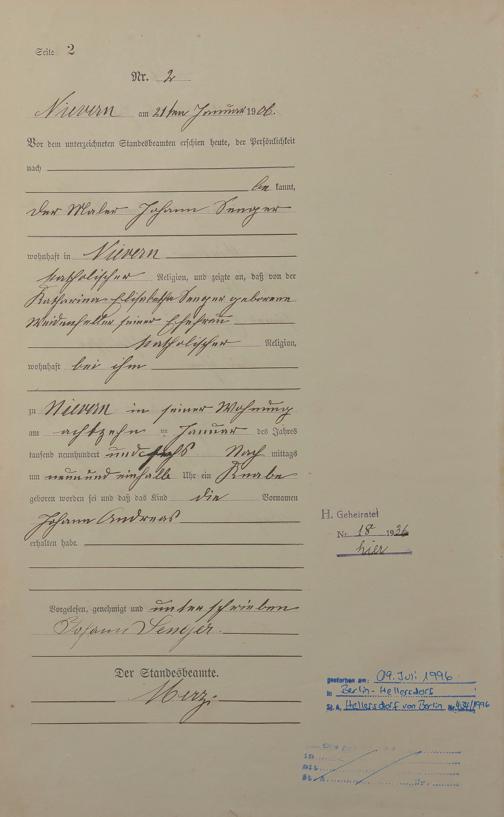 Seite 2
Nr. 2
Nievern am 21ten Januar 1906.
Vor dem unterzeichneten Standesbeamten erschien heute, der Persönlichkeit
nach
be kannt,
der Maler Johann Senger
wohnhaft in Nievern
katholischer Religion, und zeigte an, daß von der
Katharina Elisabetha Senger geborene
Weidenfeller seiner Ehefrau
katholischer Religion,
wohnhaft bei ihm
zu Nievern in seiner Wohnung
am achtzehn ten Januar des Jahres
tausend neunhundert und sechs Nach mittags
um neun und einhalb Uhr ein Knabe
geboren worden sei und daß das Kind die Vornamen
Johann Andreas
erhalten habe.
H. Geheiratet
Nr. 18 1936
hier
Vorgelesen, genehmigt und unterschrieben
Johann Senger.
Der Standesbeamte.
Merz
gestorben am: 09. Juli 1996
in Berlin-Hellersdorf
St. A. Hellersdorf von Berlin Nr. /1996